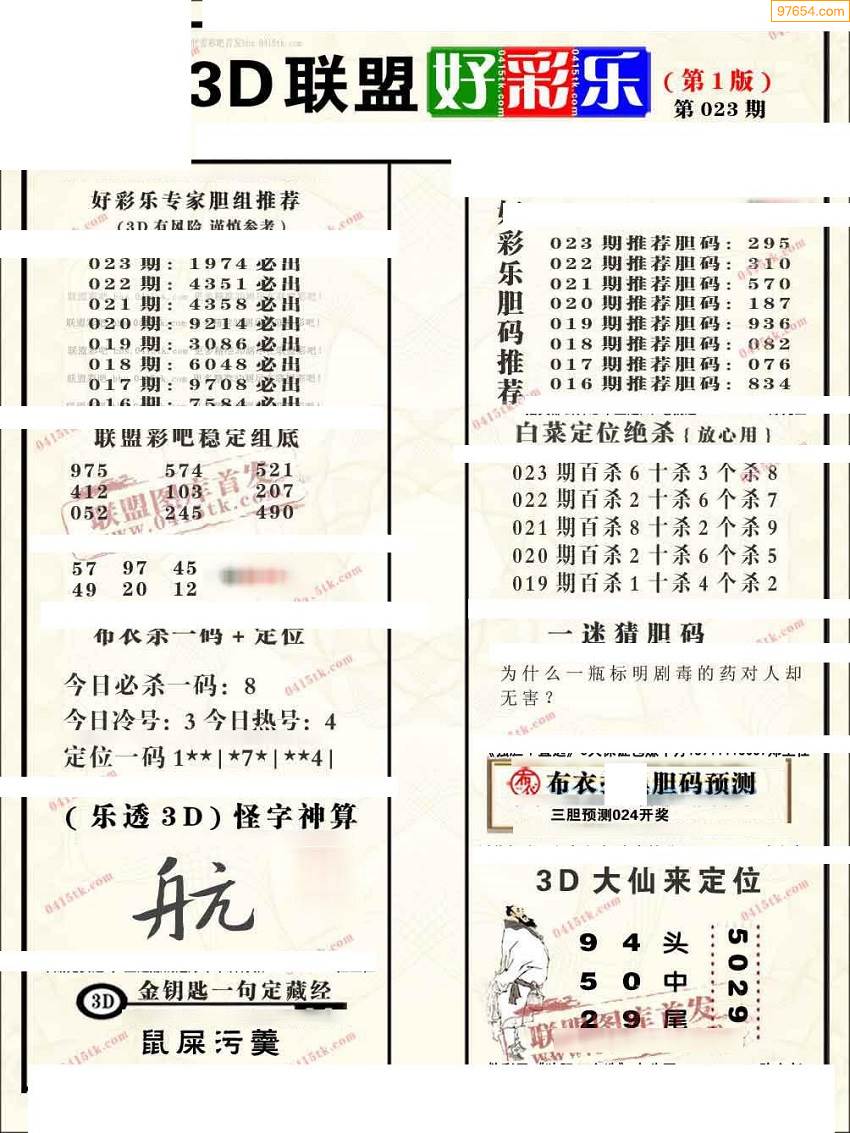 97654.com
3D联盟好彩乐
(第1版)
第 023 期
好彩乐专家胆组推荐
(3D有风险 谨慎参考)
023 期: 1974 必出
022 期: 4351 必出
021 期: 4358 必出
020 期: 9214 必出
019 期: 3086 必出
018 期: 6048 必出
017 期: 9708 必出
016 期: 7584 必出
联盟彩吧稳定组底
975 574 521
412 103 207
052 245 490
联盟图库首发
www.0415tk.com
57 97 45
49 20 12
布衣杀一码 + 定位
今日必杀一码: 8
今日冷号: 3 今日热号: 4
定位一码 1**|*7*|**4|
(乐透3D) 怪字神算
航
3D
金钥匙一句定藏经
鼠屎污羹
彩乐胆码推荐
023 期推荐胆码: 295
022 期推荐胆码: 310
021 期推荐胆码: 570
020 期推荐胆码: 187
019 期推荐胆码: 936
018 期推荐胆码: 082
017 期推荐胆码: 076
016 期推荐胆码: 834
白菜定位绝杀 { 放心用 }
023 期百杀 6 十杀 3 个杀 8
022 期百杀 2 十杀 6 个杀 7
021 期百杀 8 十杀 2 个杀 9
020 期百杀 2 十杀 6 个杀 5
019 期百杀 1 十杀 4 个杀 2
一迷猜胆码
为什么一瓶标明剧毒的药对人却
无害?
布衣
胆码预测
三胆预测024开奖
3D大仙来定位
9 4 头
5 0 中
2 9 尾
5029
联盟图库首发
0415tk.com